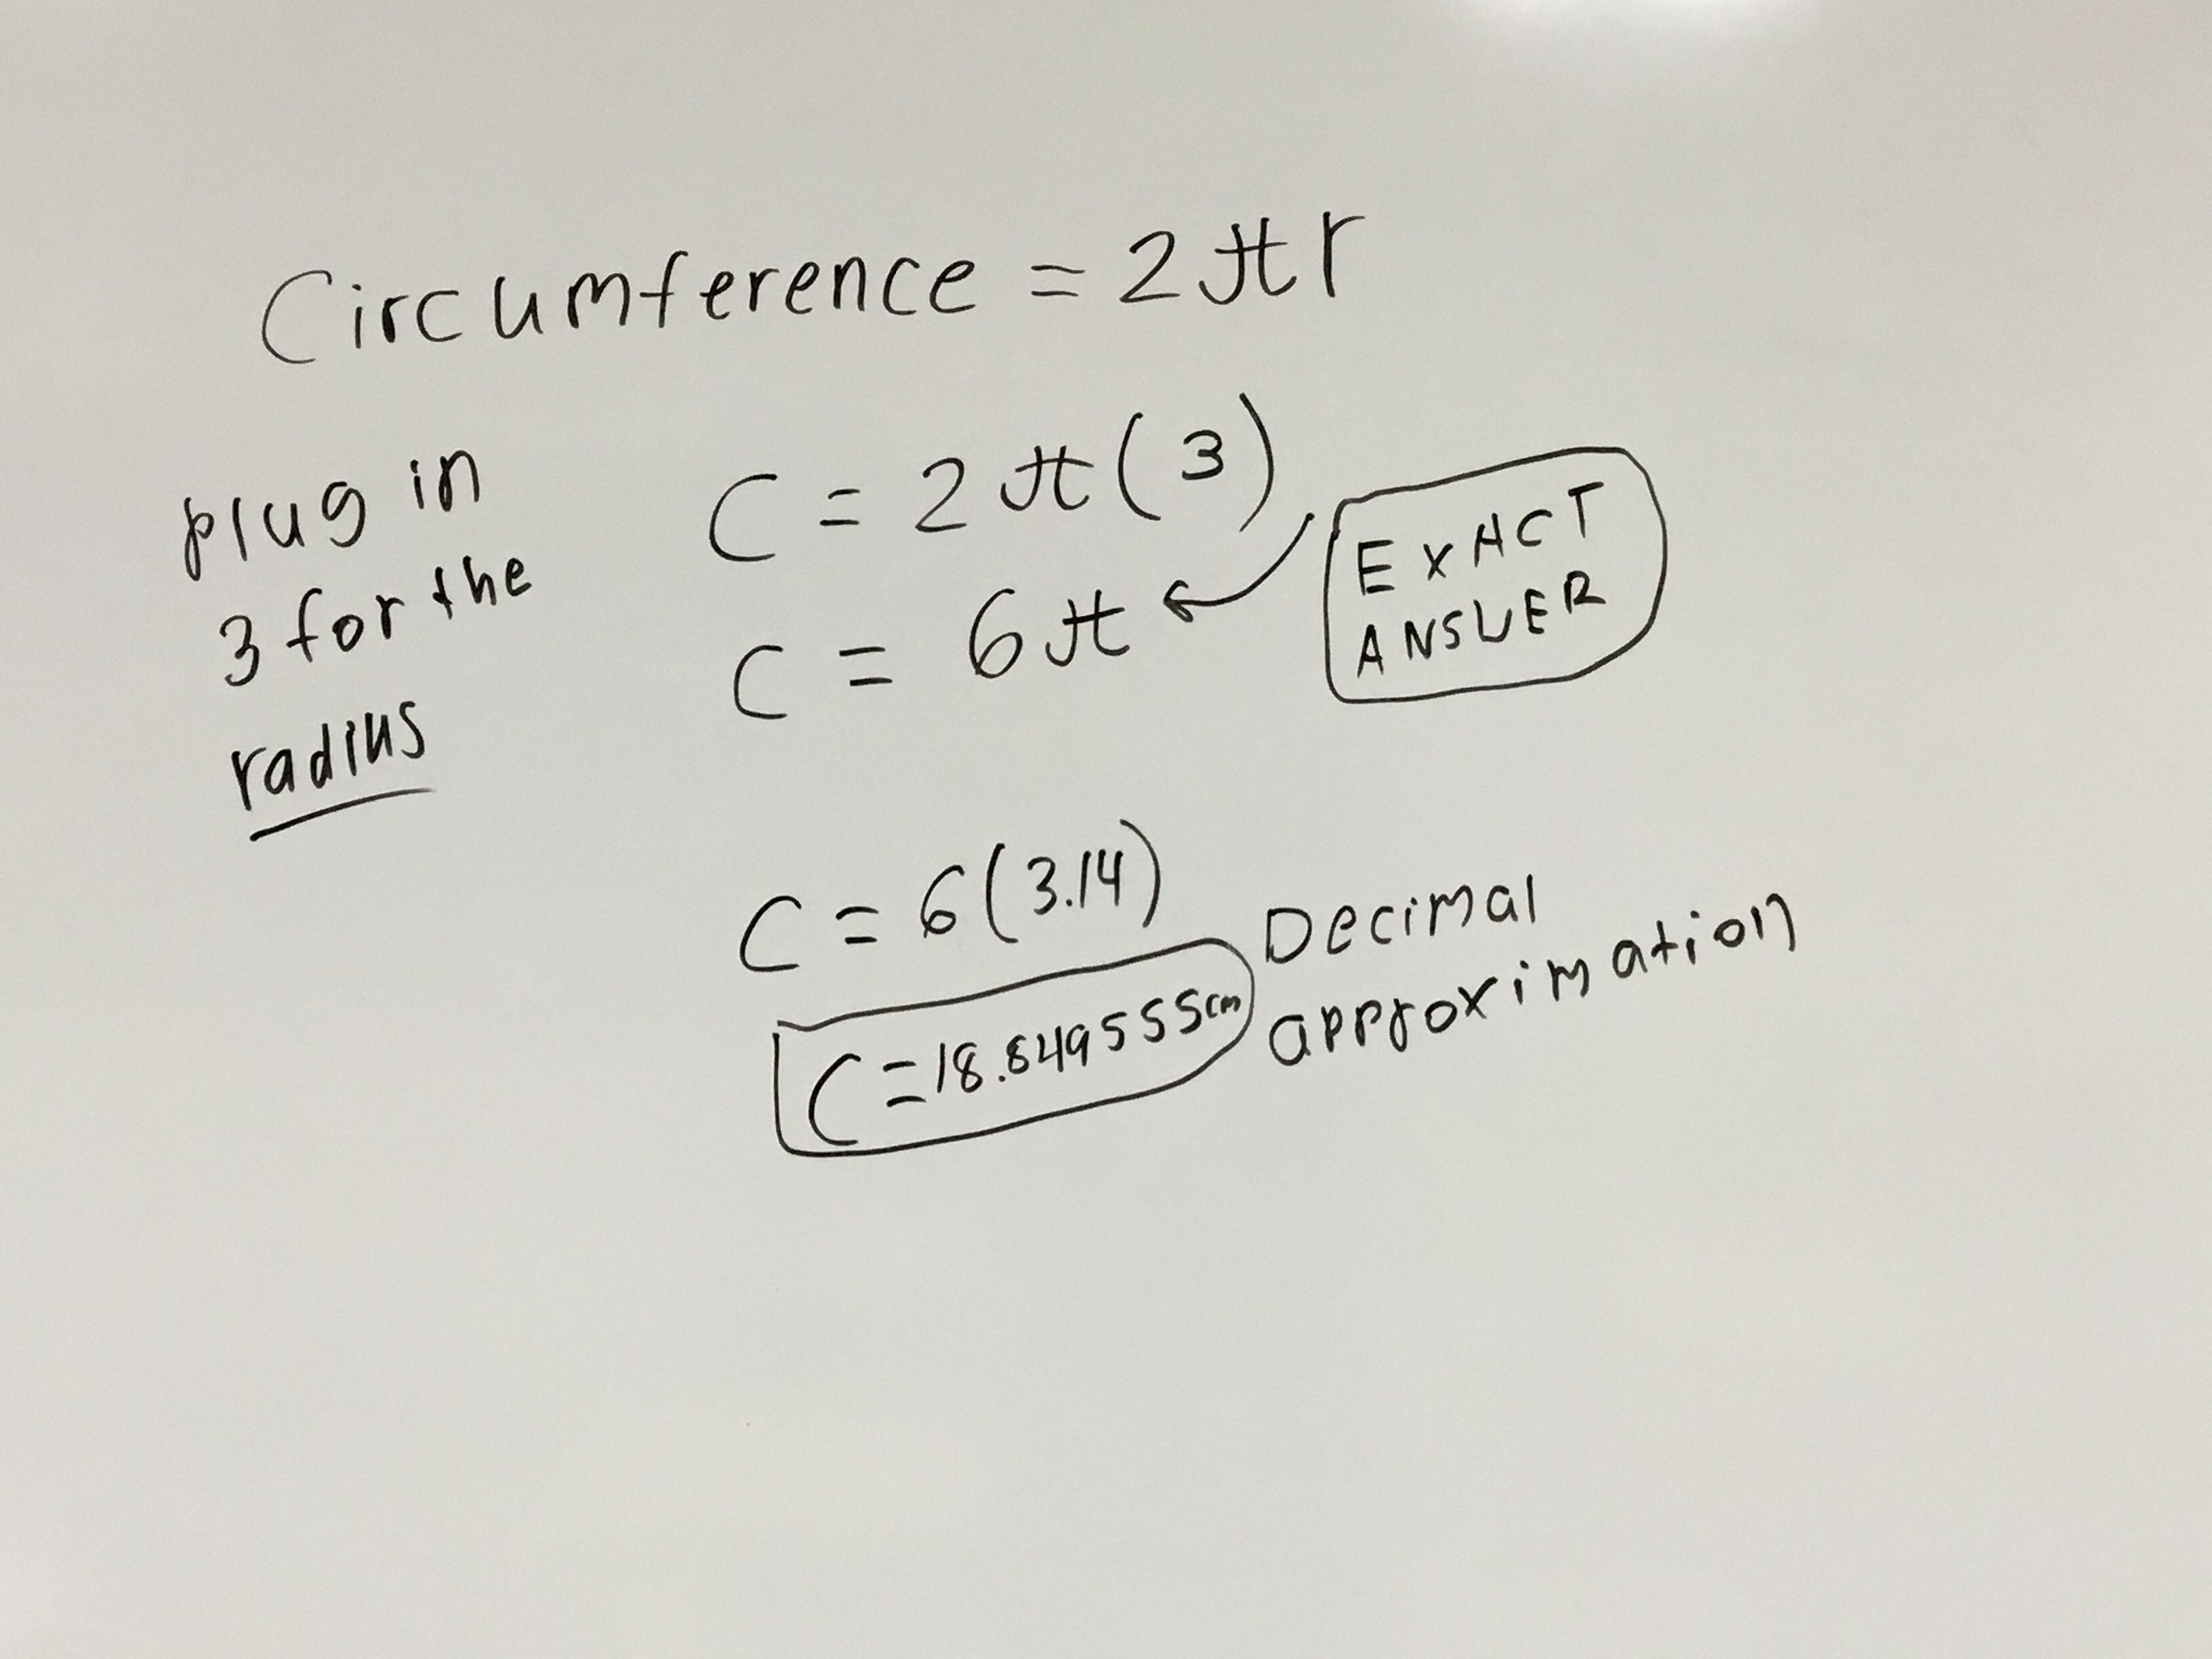 Circumference = 2πr
plug in
3 for the
radius
C = 2π(3)
C = 6π
EXACT
ANSWER
C = 6(3.14)
C=18.849555cm
Decimal
approximation